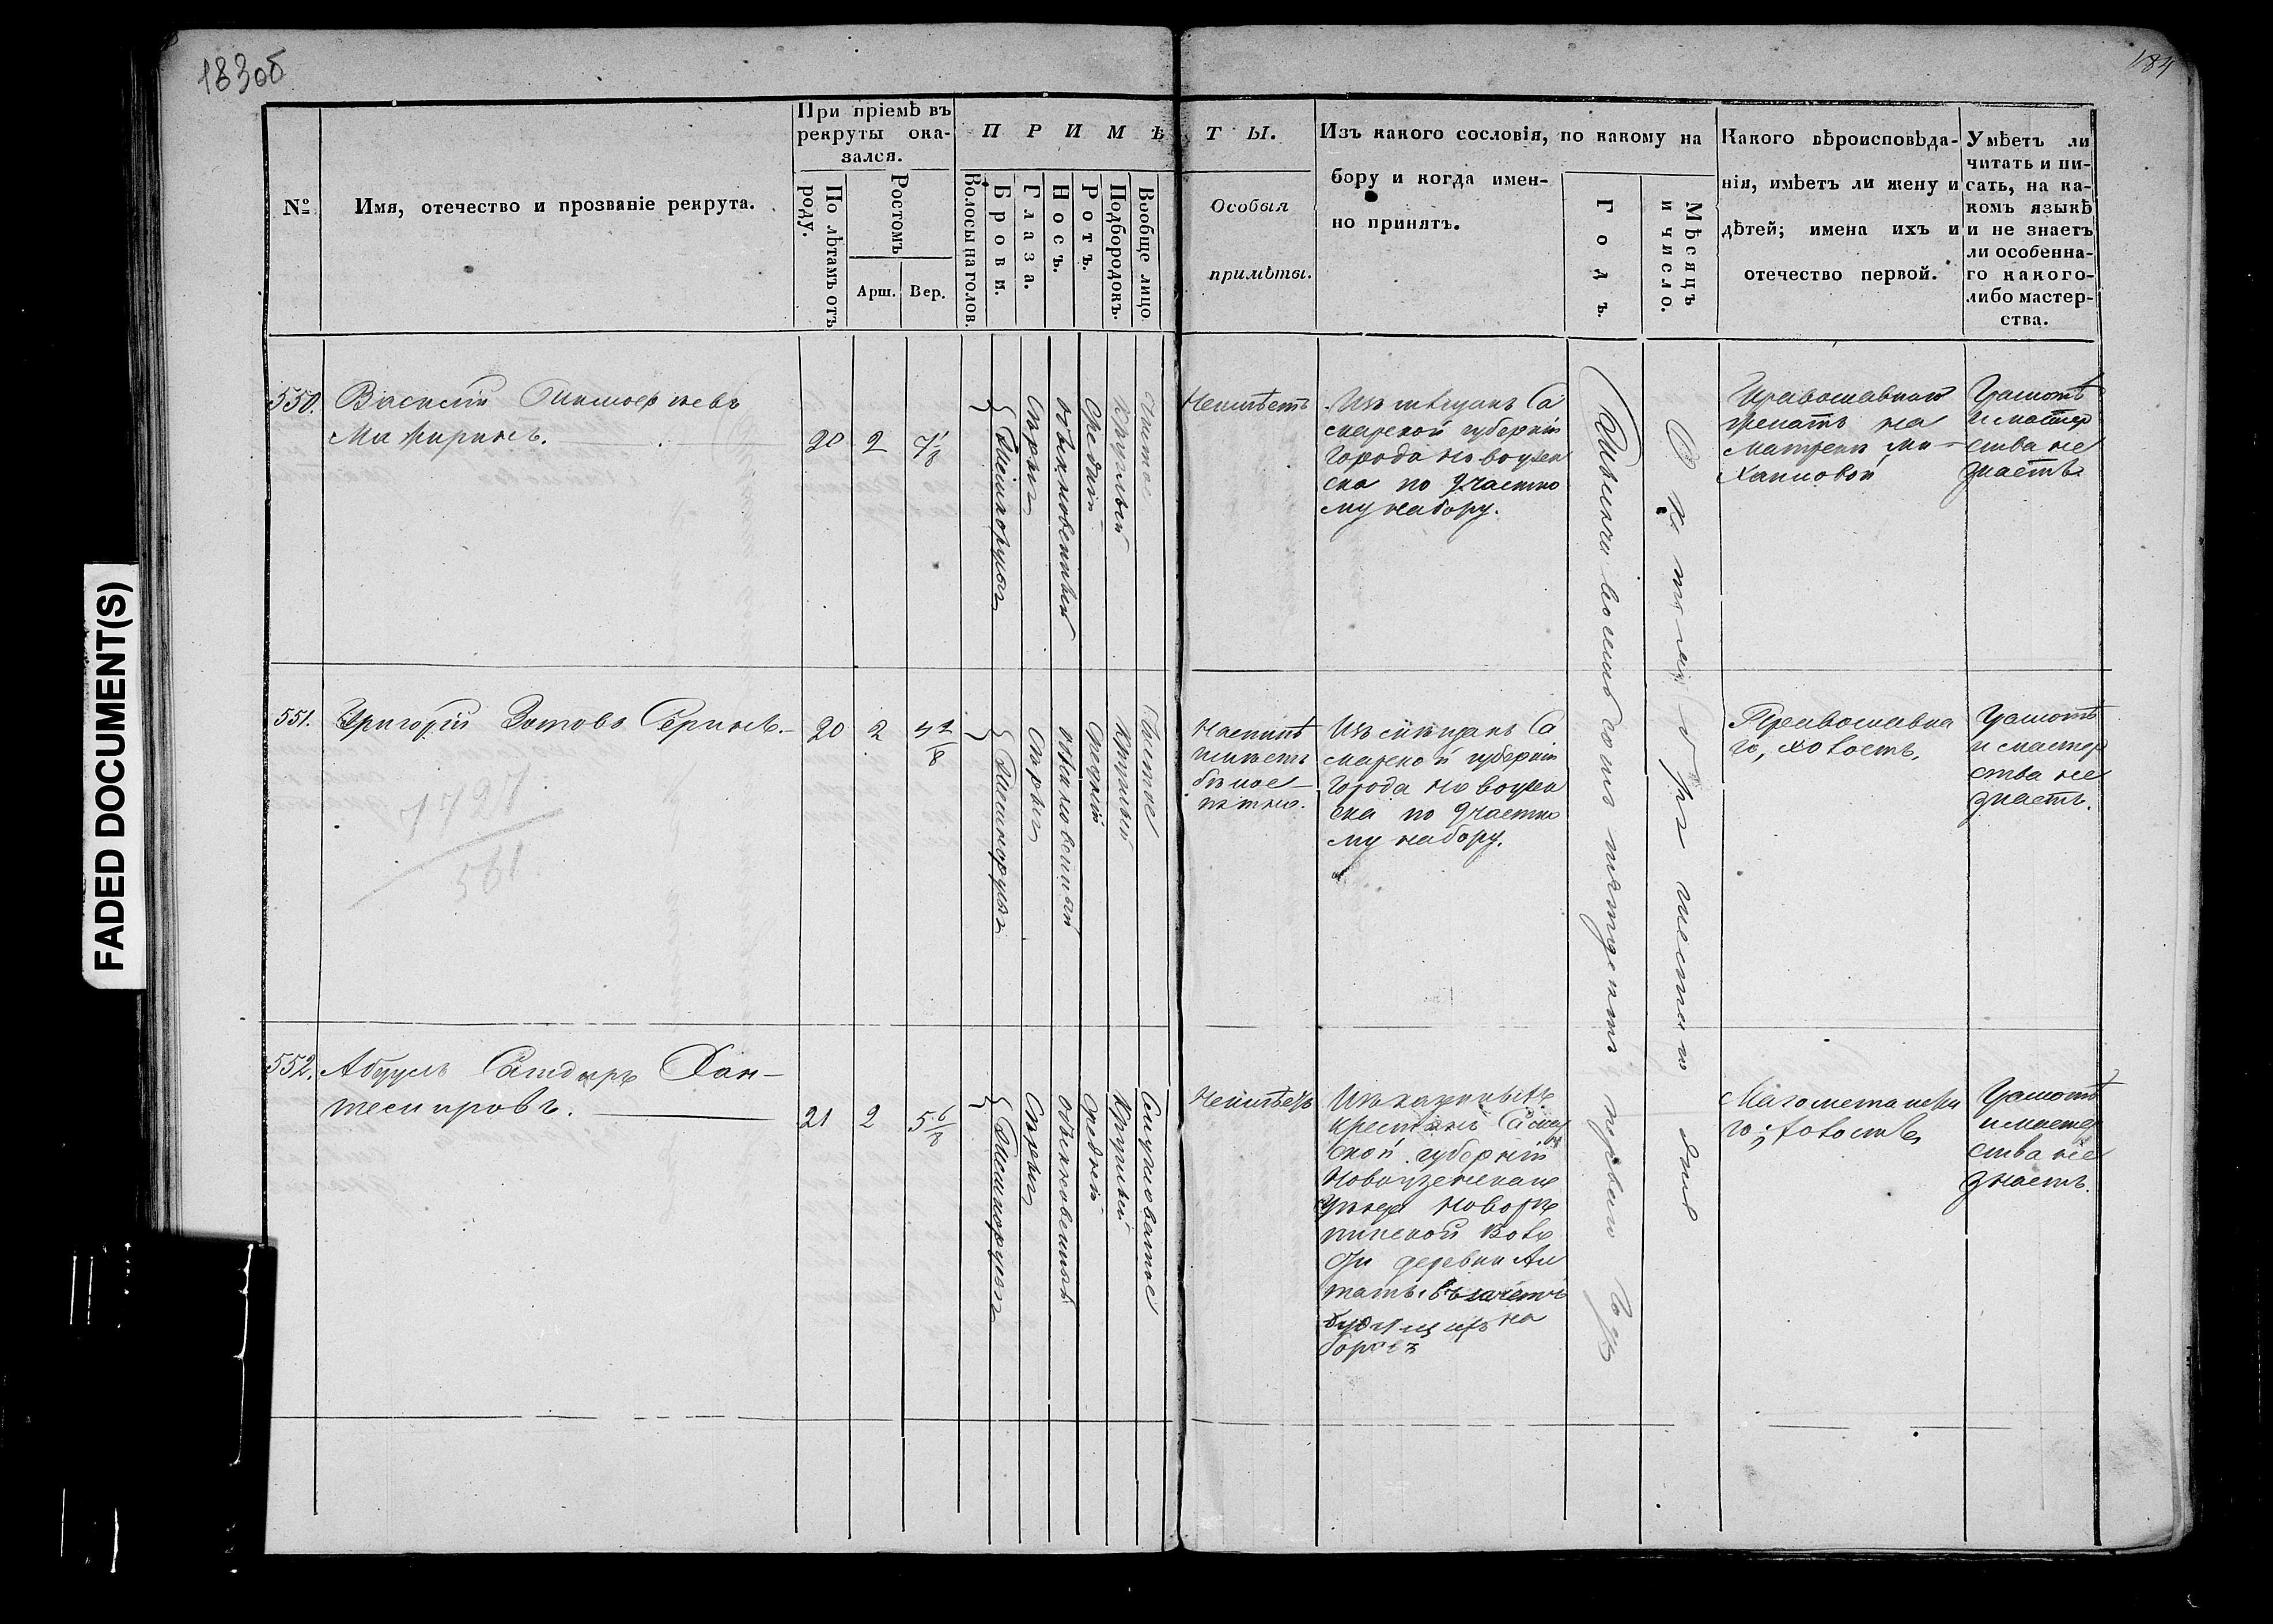 183об
184
FADED DOCUMENT(S)
№
Имя, отечество и прозваніе рекрута.
При пріемѣ въ
рекруты ока-
зался.
По лѣтамъ отъ
роду.
Ростомъ
Арш.
Вер.
ПРИМѢТЫ.
Волосы на голов.
Брови.
Глаза.
Носъ.
Ротъ.
Подбородокъ.
Вообще лицо
Особыя
примѣты.
Изъ какого сословія, по какому на
бору и когда имен-
но принятъ.
Годъ.
Мѣсяцъ
и число.
Какого вѣроисповѣда-
нія, имѣетъ ли жену и
дѣтей; имена ихъ и
отечество первой.
Умѣетъ ли
читать и пи-
сать, на ка-
комъ языкѣ
и не знаетъ
ли особенна-
го какого-
либо мастер-
ства.
Тысяча восемьсотъ пятьдесятъ перваго года
Октября шестаго дня
550.
20
2
Темнорусыя
Сѣрыя
обыкновенный
Средній
Круглый
Чистое
Неимѣетъ
Изъ мѣщанъ Са
марской губерніи
города Новоузен
ска по Участко
му набору.
Православнаго
женатъ на
Матрене Ми-
хайловой
Грамотѣ
и мастер
ства не
знаетъ
551.
Григорій Зотовъ
20
2
4 2/8
Темнорусыя
Сѣрыя
обыкновенный
Средній
Круглый
Чистое
На спинѣ
имѣетъ
бѣлое
пятно.
Изъ мѣщанъ Са
марской губерніи
города Новоузен
ска по Участко
му набору.
Православна
го, холостъ.
Грамотѣ
и мастер
ства не
знаетъ.
561
552.
Абдулъ
21
2
5 6/8
Темнорусыя
Сѣрыя
обыкновенный
Средній
Круглый
Неимѣетъ
Изъ казенныхъ
крестьянъ Самар
ской губерніи
Новоузенскаго
уѣзда Новорѣ
пинской Воло
сти деревни Ал
таты въ зачетъ
будущихъ на
боровъ
Магометанска
го, холостъ
Грамотѣ
и мастер
ства не
знаетъ.